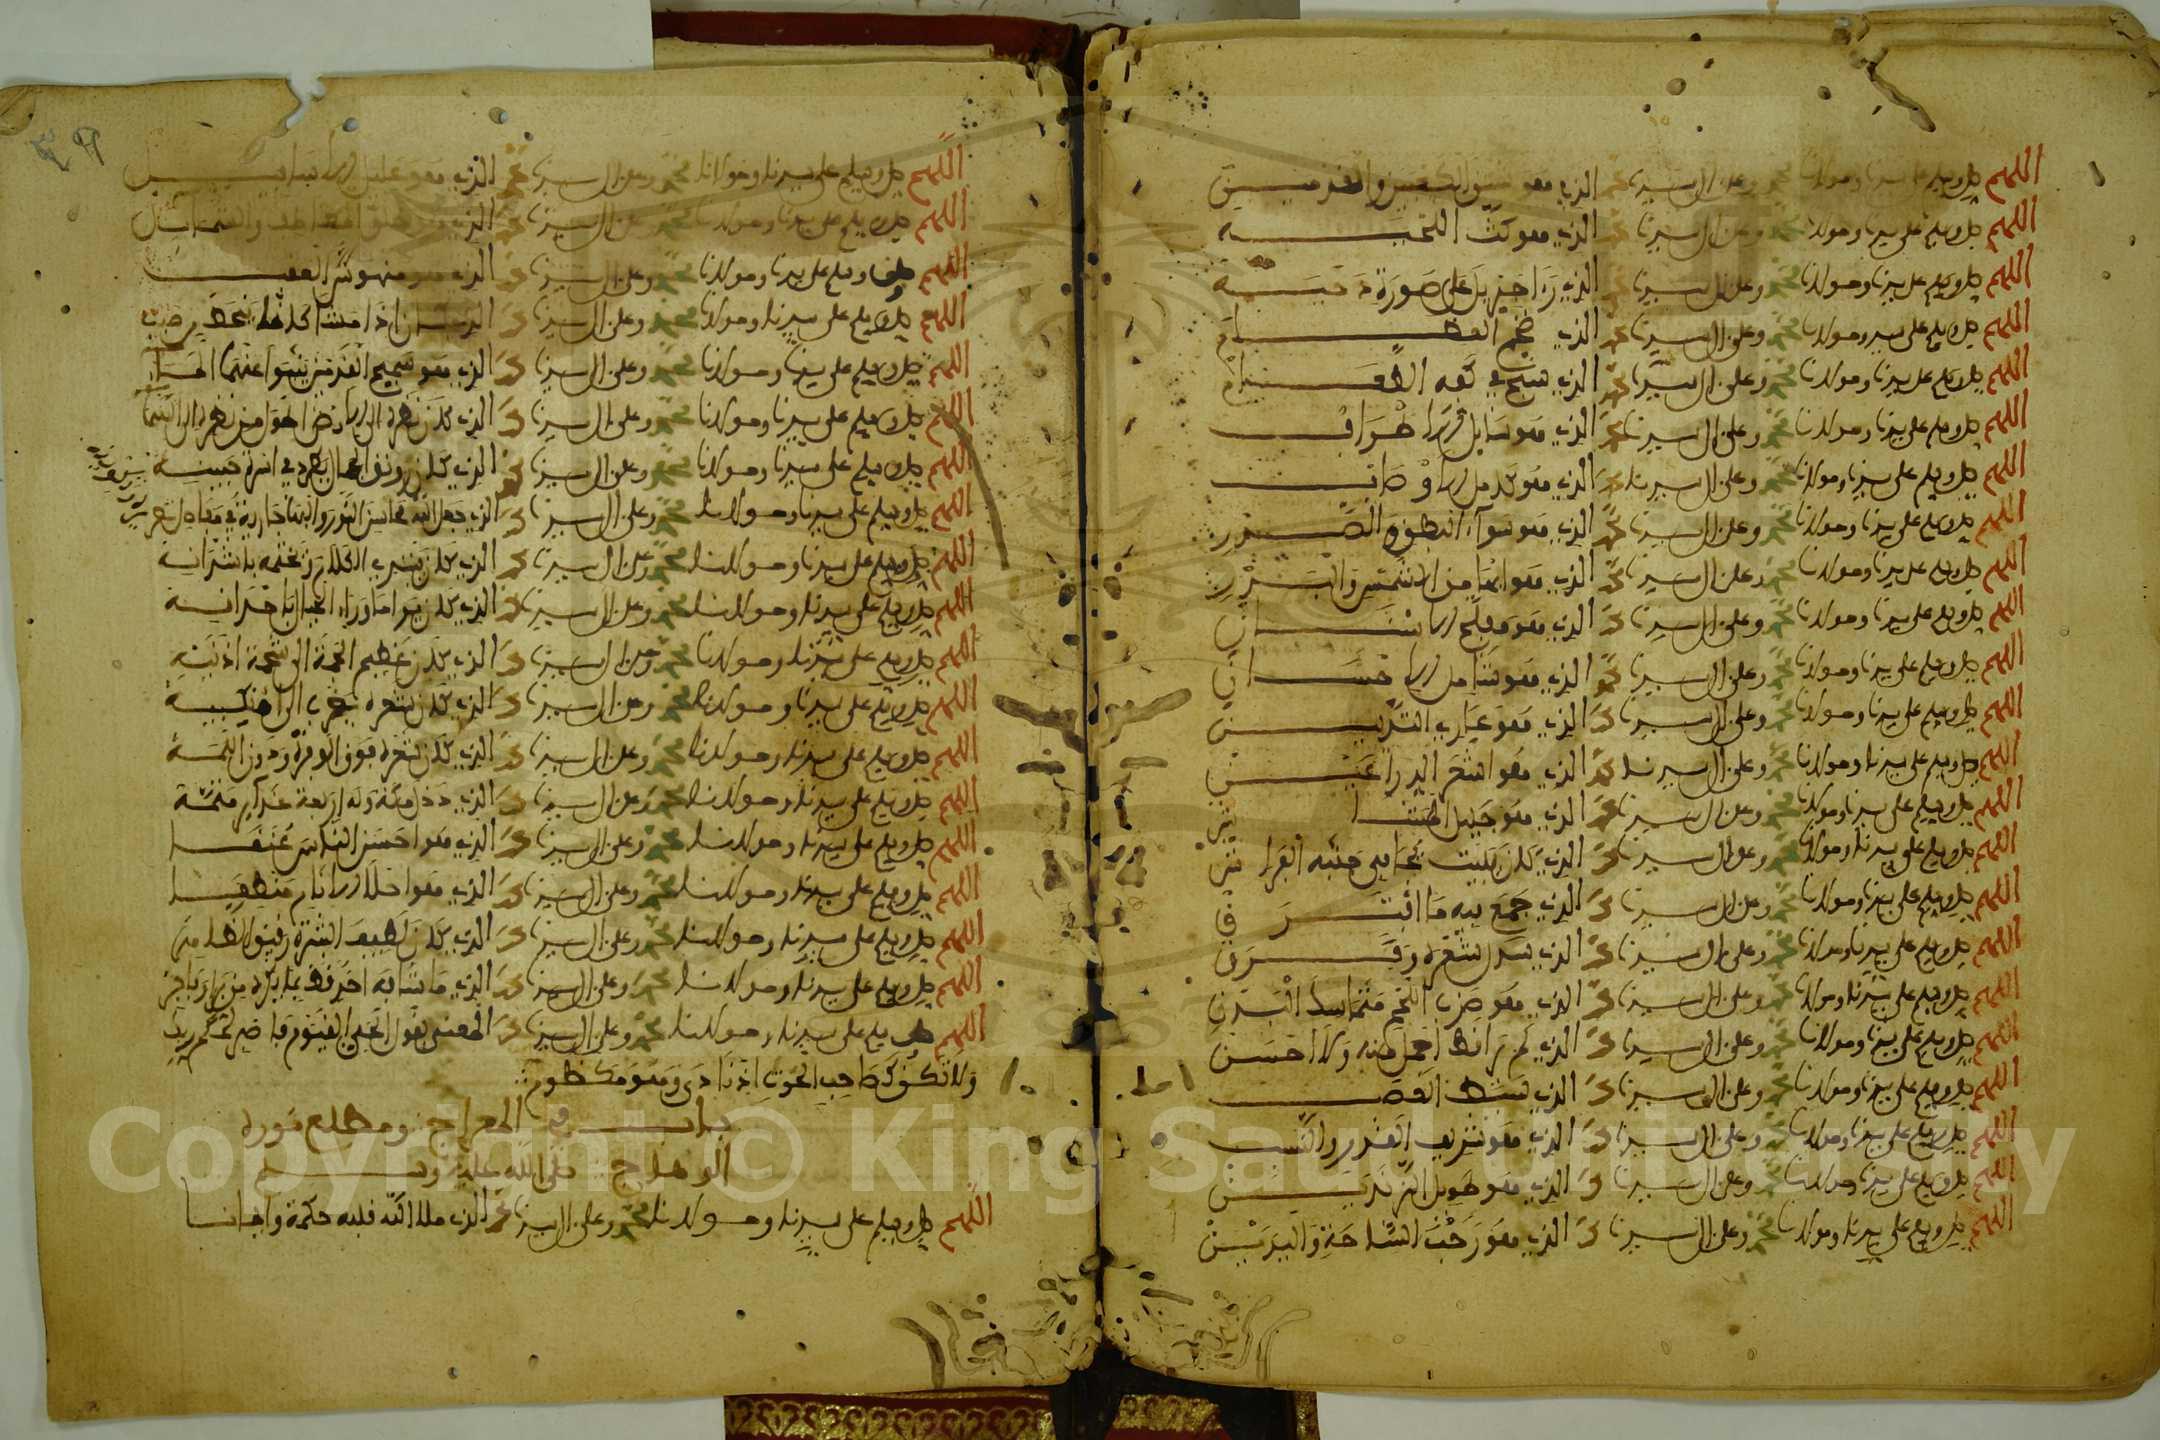 اللهم صل وسلم على سيدنا ومولانا محمد وعلى ال سيدنا محمد الذي هو شثن الكفين والقدمين
اللهم صل وسلم على سيدنا ومولانا محمد وعلى ال سيدنا محمد الذي هو كث اللحية
اللهم صل وسلم على سيدنا ومولانا محمد وعلى ال سيدنا محمد الذي راى جبريل على صورة دحية
اللهم صل وسلم على سيدنا ومولانا محمد وعلى ال سيدنا محمد الذي ضخم العظام
اللهم صل وسلم على سيدنا ومولانا محمد وعلى ال سيدنا محمد الذي سبح في كفه الطعام
اللهم صل وسلم على سيدنا ومولانا محمد وعلى ال سيدنا محمد الذي هو سايل الاطراف
اللهم صل وسلم على سيدنا ومولانا محمد وعلى ال سيدنا محمد الذي هو كامل الاوصاف
اللهم صل وسلم على سيدنا ومولانا محمد وعلى ال سيدنا محمد الذي هو سواء البطن والصدر
اللهم صل وسلم على سيدنا ومولانا محمد وعلى ال سيدنا محمد الذي هو ابها من الشمس والبدر
اللهم صل وسلم على سيدنا ومولانا محمد وعلى ال سيدنا محمد الذي هو مفلج الاسنان
اللهم صل وسلم على سيدنا ومولانا محمد وعلى ال سيدنا محمد الذي هو شامل الاحسان
اللهم صل وسلم على سيدنا ومولانا محمد وعلى ال سيدنا محمد الذي هو عاري الثديين
اللهم صل وسلم على سيدنا ومولانا محمد وعلى ال سيدنا محمد الذي هو اشعر الذراعين
اللهم صل وسلم على سيدنا ومولانا محمد وعلى ال سيدنا محمد الذي هو جليل المشاش
اللهم صل وسلم على سيدنا ومولانا محمد وعلى ال سيدنا محمد الذي كان يبيت يجافي جنبه الفراش
اللهم صل وسلم على سيدنا ومولانا محمد وعلى ال سيدنا محمد الذي جمع فيه ما افترق
اللهم صل وسلم على سيدنا ومولانا محمد وعلى ال سيدنا محمد الذي سدل شعره وفرق
اللهم صل وسلم على سيدنا ومولانا محمد وعلى ال سيدنا محمد الذي هو ضرب اللحم متماسك البدن
اللهم صل وسلم على سيدنا ومولانا محمد وعلى ال سيدنا محمد الذي لم ير قط اجمل منه ولا احسن
اللهم صل وسلم على سيدنا ومولانا محمد وعلى ال سيدنا محمد الذي سبط القصب
اللهم صل وسلم على سيدنا ومولانا محمد وعلى ال سيدنا محمد الذي هو شريف القدر والنسب
اللهم صل وسلم على سيدنا ومولانا محمد وعلى ال سيدنا محمد الذي هو طويل الزندين
اللهم صل وسلم على سيدنا ومولانا محمد وعلى ال سيدنا محمد الذي هو رحب الساحة واليدين
اللهم صل وسلم على سيدنا ومولانا محمد وعلى ال سيدنا محمد الذي هو
اللهم صل وسلم على سيدنا ومولانا محمد وعلى ال سيدنا محمد الذي
اللهم صل وسلم على سيدنا ومولانا محمد وعلى ال سيدنا محمد الذي هو منهوش العقب
اللهم صل وسلم على سيدنا ومولانا محمد وعلى ال سيدنا محمد الذي كان اذا مشا كانما ينحط من صبب
اللهم صل وسلم على سيدنا ومولانا محمد وعلى ال سيدنا محمد الذي هو مسيح القدمين ينبو عنهما الماء
اللهم صل وسلم على سيدنا ومولانا محمد وعلى ال سيدنا محمد الذي كان نظره الى الارض اطول من نظره الى السما
اللهم صل وسلم على سيدنا ومولانا محمد وعلى ال سيدنا محمد الذي كان رونق الجمال يطرد في اسرة جبينه
اللهم صل وسلم على سيدنا ومولانا محمد وعلى ال سيدنا محمد الذي جعل الله محاسن النور والبها جارية في
اللهم صل وسلم على سيدنا ومولانا محمد وعلى ال سيدنا محمد الذي كان يفتح الكلام ويختمه باشداقه
اللهم صل وسلم على سيدنا ومولانا محمد وعلى ال سيدنا محمد الذي كان
اللهم صل وسلم على سيدنا ومولانا محمد وعلى ال سيدنا محمد الذي كان عظيم الجمة الى شحمة اذنيه
اللهم صل وسلم على سيدنا ومولانا محمد وعلى ال سيدنا محمد الذي كان شعره يضرب الى منكبيه
اللهم صل وسلم على سيدنا ومولانا محمد وعلى ال سيدنا محمد الذي كان شعره فوق الوفرة ودون الجمة
اللهم صل وسلم على سيدنا ومولانا محمد وعلى ال سيدنا محمد الذي دخل مكة وله اربعة غدائر
اللهم صل وسلم على سيدنا ومولانا محمد وعلى ال سيدنا محمد الذي هو احسن الناس عنقا
اللهم صل وسلم على سيدنا ومولانا محمد وعلى ال سيدنا محمد الذي هو احلا الانام منطقا
اللهم صل وسلم على سيدنا ومولانا محمد وعلى ال سيدنا محمد الذي كان لطيف البشرة رقيق الظاهر
اللهم صل وسلم على سيدنا ومولانا محمد وعلى ال سيدنا محمد الذي ما شابه احد قط
اللهم صل وسلم على سيدنا ومولانا محمد وعلى ال سيدنا محمد المعني بقول الحي القيوم فاصبر لحكم ربك
ولا تكن كصاحب الحوت اذ نادى وهو مكظوم
باب في المعراج ومطلع نوره
الوهاج صلى الله عليه وسلم
اللهم صل وسلم على سيدنا ومولانا محمد وعلى ال سيدنا محمد الذي ملا الله قلبه حكمة وايمانا
Copyright © King Saud University